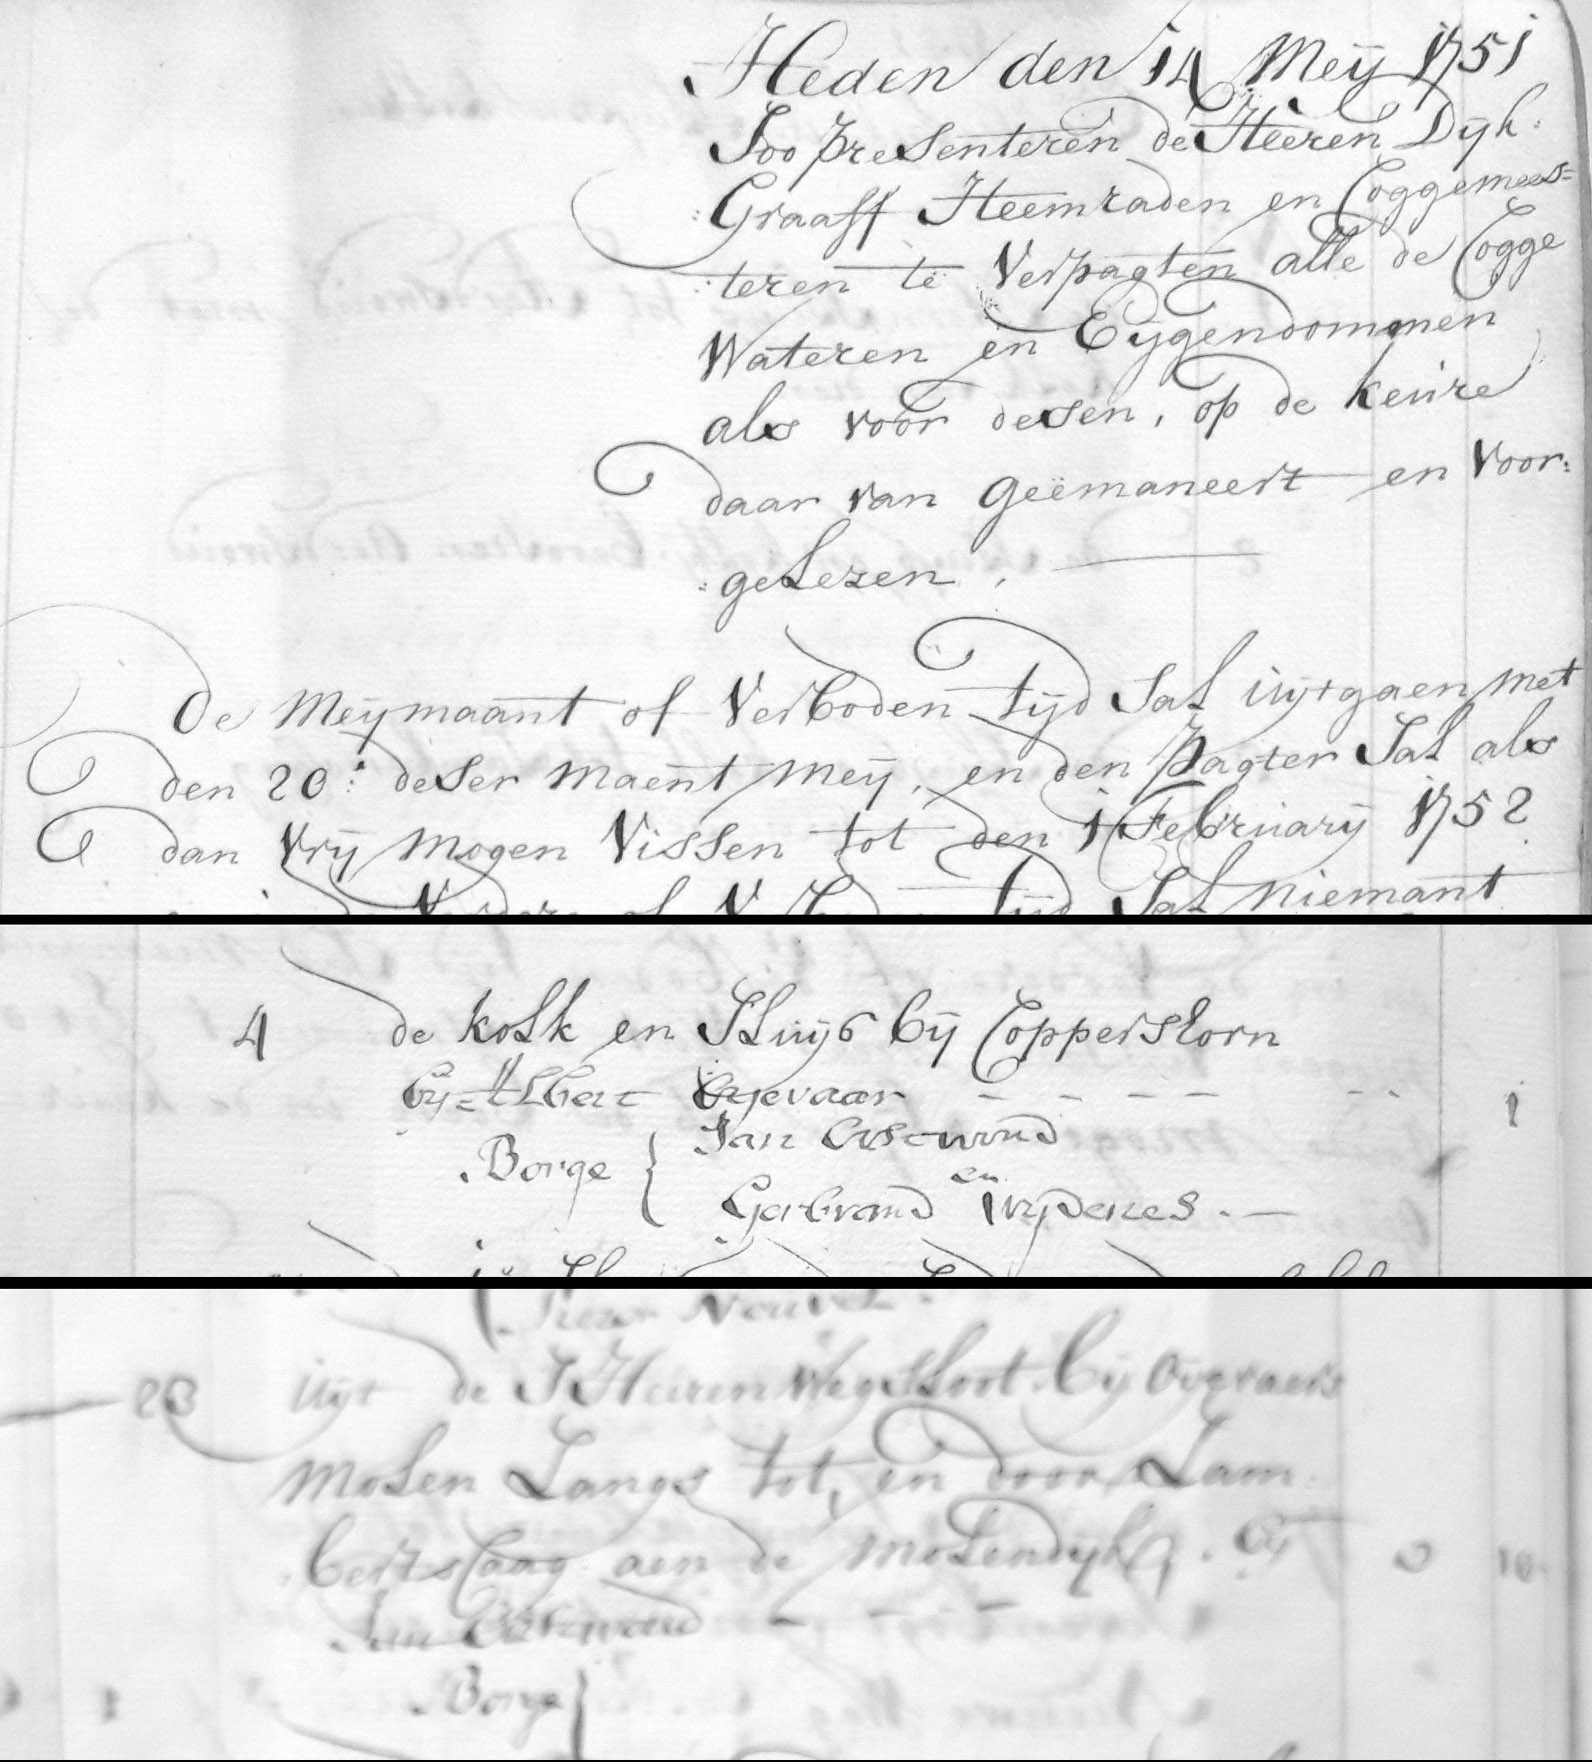 Heden den 14 Meij 1751
Soo presenteren de Heeren Dijk:
:Graaff Heemraden en Coggemees=
:teren te Verpagten alle de Cogge
Wateren en Eijgendommen
als voor desen, op de keure
daar van geëmaneert en Voor:
:geLezen.
De Meijmaant of Verboden tijd SaL uijtgaen met
den 20: deser Maent Meij, en den Pagter SaL als
dan Vrij Mogen Vissen tot den 1 Februarij 1752
of tijd SaL niemant
4 de koLk en SLuijs bij Copperstorn
bij Albert Oijevaar - - - - - - 1
Borge { Jan Oostwoud
en
Gerbrand Wijdenes. -
Pieter
23 Uijt de S Heeren WegsLoot bij Oijevaers
MoLen Langs tot, en door Lam:
:bertsCaag aen de MoLendijk, . bij 0 10
Jan Oostwoud - - -
Borge {